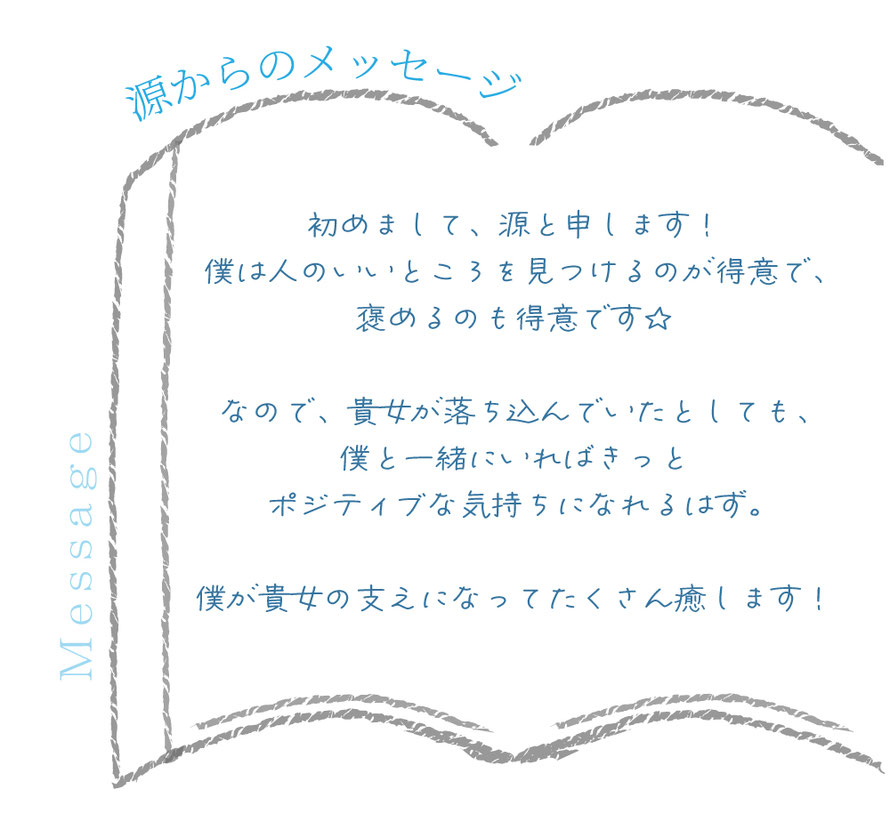 源からのメッセージ
初めまして、源と申します！
僕は人のいいところを見つけるのが得意で、
褒めるのも得意です☆
なので、貴女が落ち込んでいたとしても、
僕と一緒にいればきっと
ポジティブな気持ちになれるはず。
僕が貴女の支えになってたくさん癒します！
Message